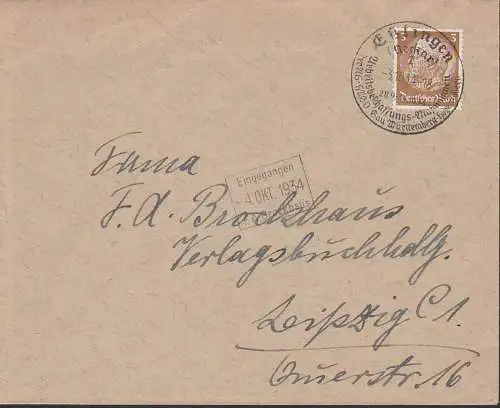 Eutingen
Deutsches Reich
Firma
Eingegangen
- 4. OKT. 1934
F. A. Brockhaus
Verlagsbuchhdlg.
Leipzig C 1.
Querstr 16